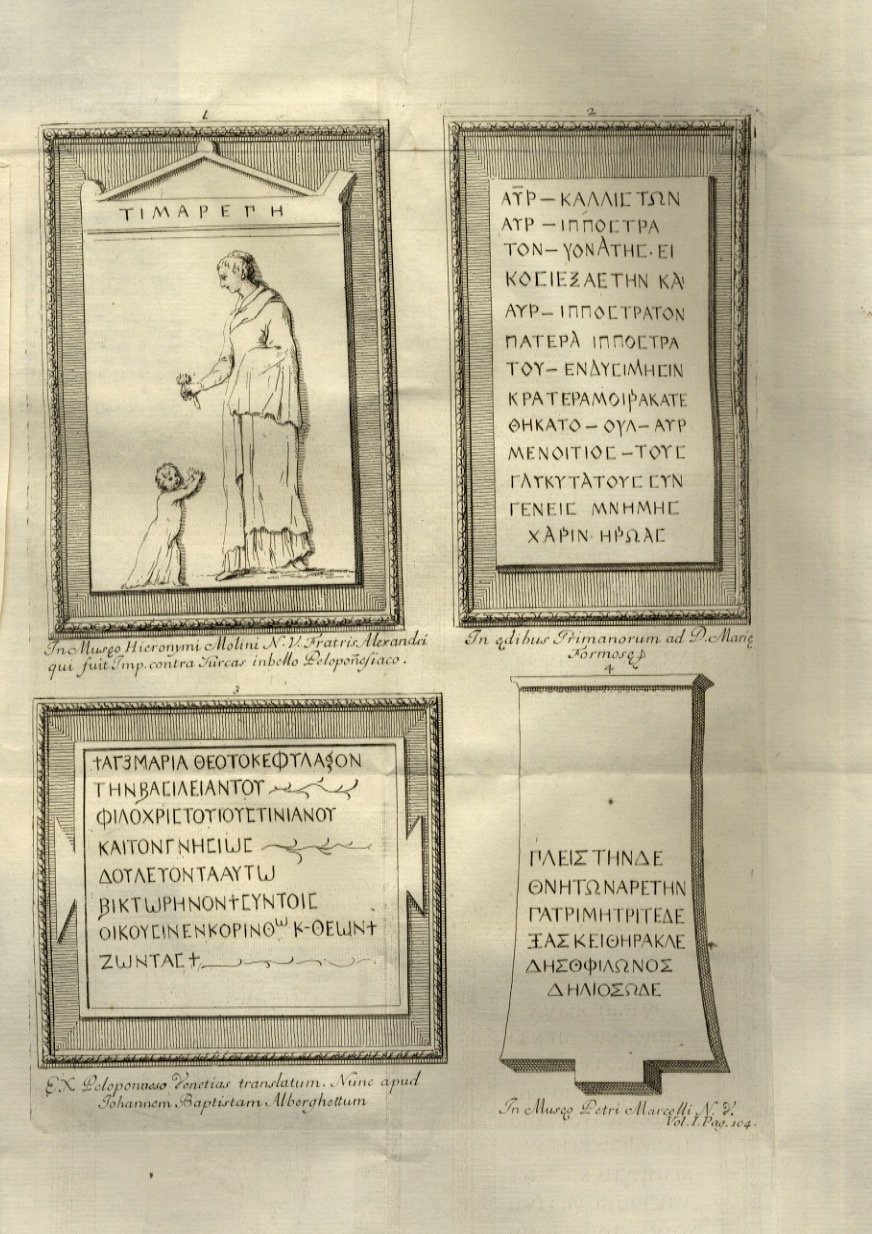 1
ΤΙΜΑΡΕΓΗ
In Museo Hieronymi Molini N. V. Fratris Alexandri
qui fuit Imp. contra Turcas in bello Peloponesiaco.
2
ΑΥΡ – ΚΑΛΛΙCΤΩΝ
ΑΥΡ – ΙΠΠΟCΤΡΑ
ΤΟΝ – ΥΟΝΑΤΗC · ΕΙ
ΚΟCΙΕΞΑΕΤΗΝ ΚΑΙ
ΑΥΡ – ΙΠΠΟCΤΡΑΤΟΝ
ΠΑΤΕΡΑ ΙΠΠΟCΤΡΑ
ΤΟΥ – ΕΝΔΥCΙΜΗCΙΝ
ΚΡΑΤΕΡΑΜΟΙΡΑΚΑΤΕ
ΘΗΚΑΤΟ – ΟΥΛ – ΑΥΡ
ΜΕΝΟΙΤΙΟC – ΤΟΥC
ΓΛΥΚΥΤΑΤΟΥC CΥΝ
ΓΕΝΕΙC ΜΝΗΜΗC
ΧΑΡΙΝ · ΗΡΩΑC
In ędibus Primanorum ad D. Marię
Formosę
3
†ΑΓΞΜΑΡΙΑ ΘΕΟΤΟΚΕΦΥΛΑξΟΝ
ΤΗΝΒΑCΙΛΕΙΑΝΤΟΥ
ΦΙΛΟΧΡΙCΤΟΥΙΟΥCΤΙΝΙΑΝΟΥ
ΚΑΙΤΟΝΓΝΗCΙΩC
ΔΟΥΛΕΥΟΝΤΑΑΥΤΩ
ΒΙΚΤΩΡΗΝΟΝ†CΥΝΤΟΙC
ΟΙΚΟΥCΙΝΕΝΚΟΡΙΝΘω Κ-ΘΕΩΝ†
ΖΩΝΤΑC†
EX Peloponneso Venetias translatum. Nunc apud
Johannem Baptistam Alberghettum
4
ΠΛΕΙΣΤΗΝΔΕ
ΘΝΗΤΩΝΑΡΕΤΗΝ
ΠΑΤΡΙΜΗΤΡΙΤΕΔΕ
ΞΑΣΚΕΙΘΗΡΑΚΛΕ
ΔΗΣΘΦΙΛΩΝΟΣ
ΔΗΛΙΟΣΩΔΕ
In Museo Petri Marcelli N. V.
Vol. I. Pag. 104.